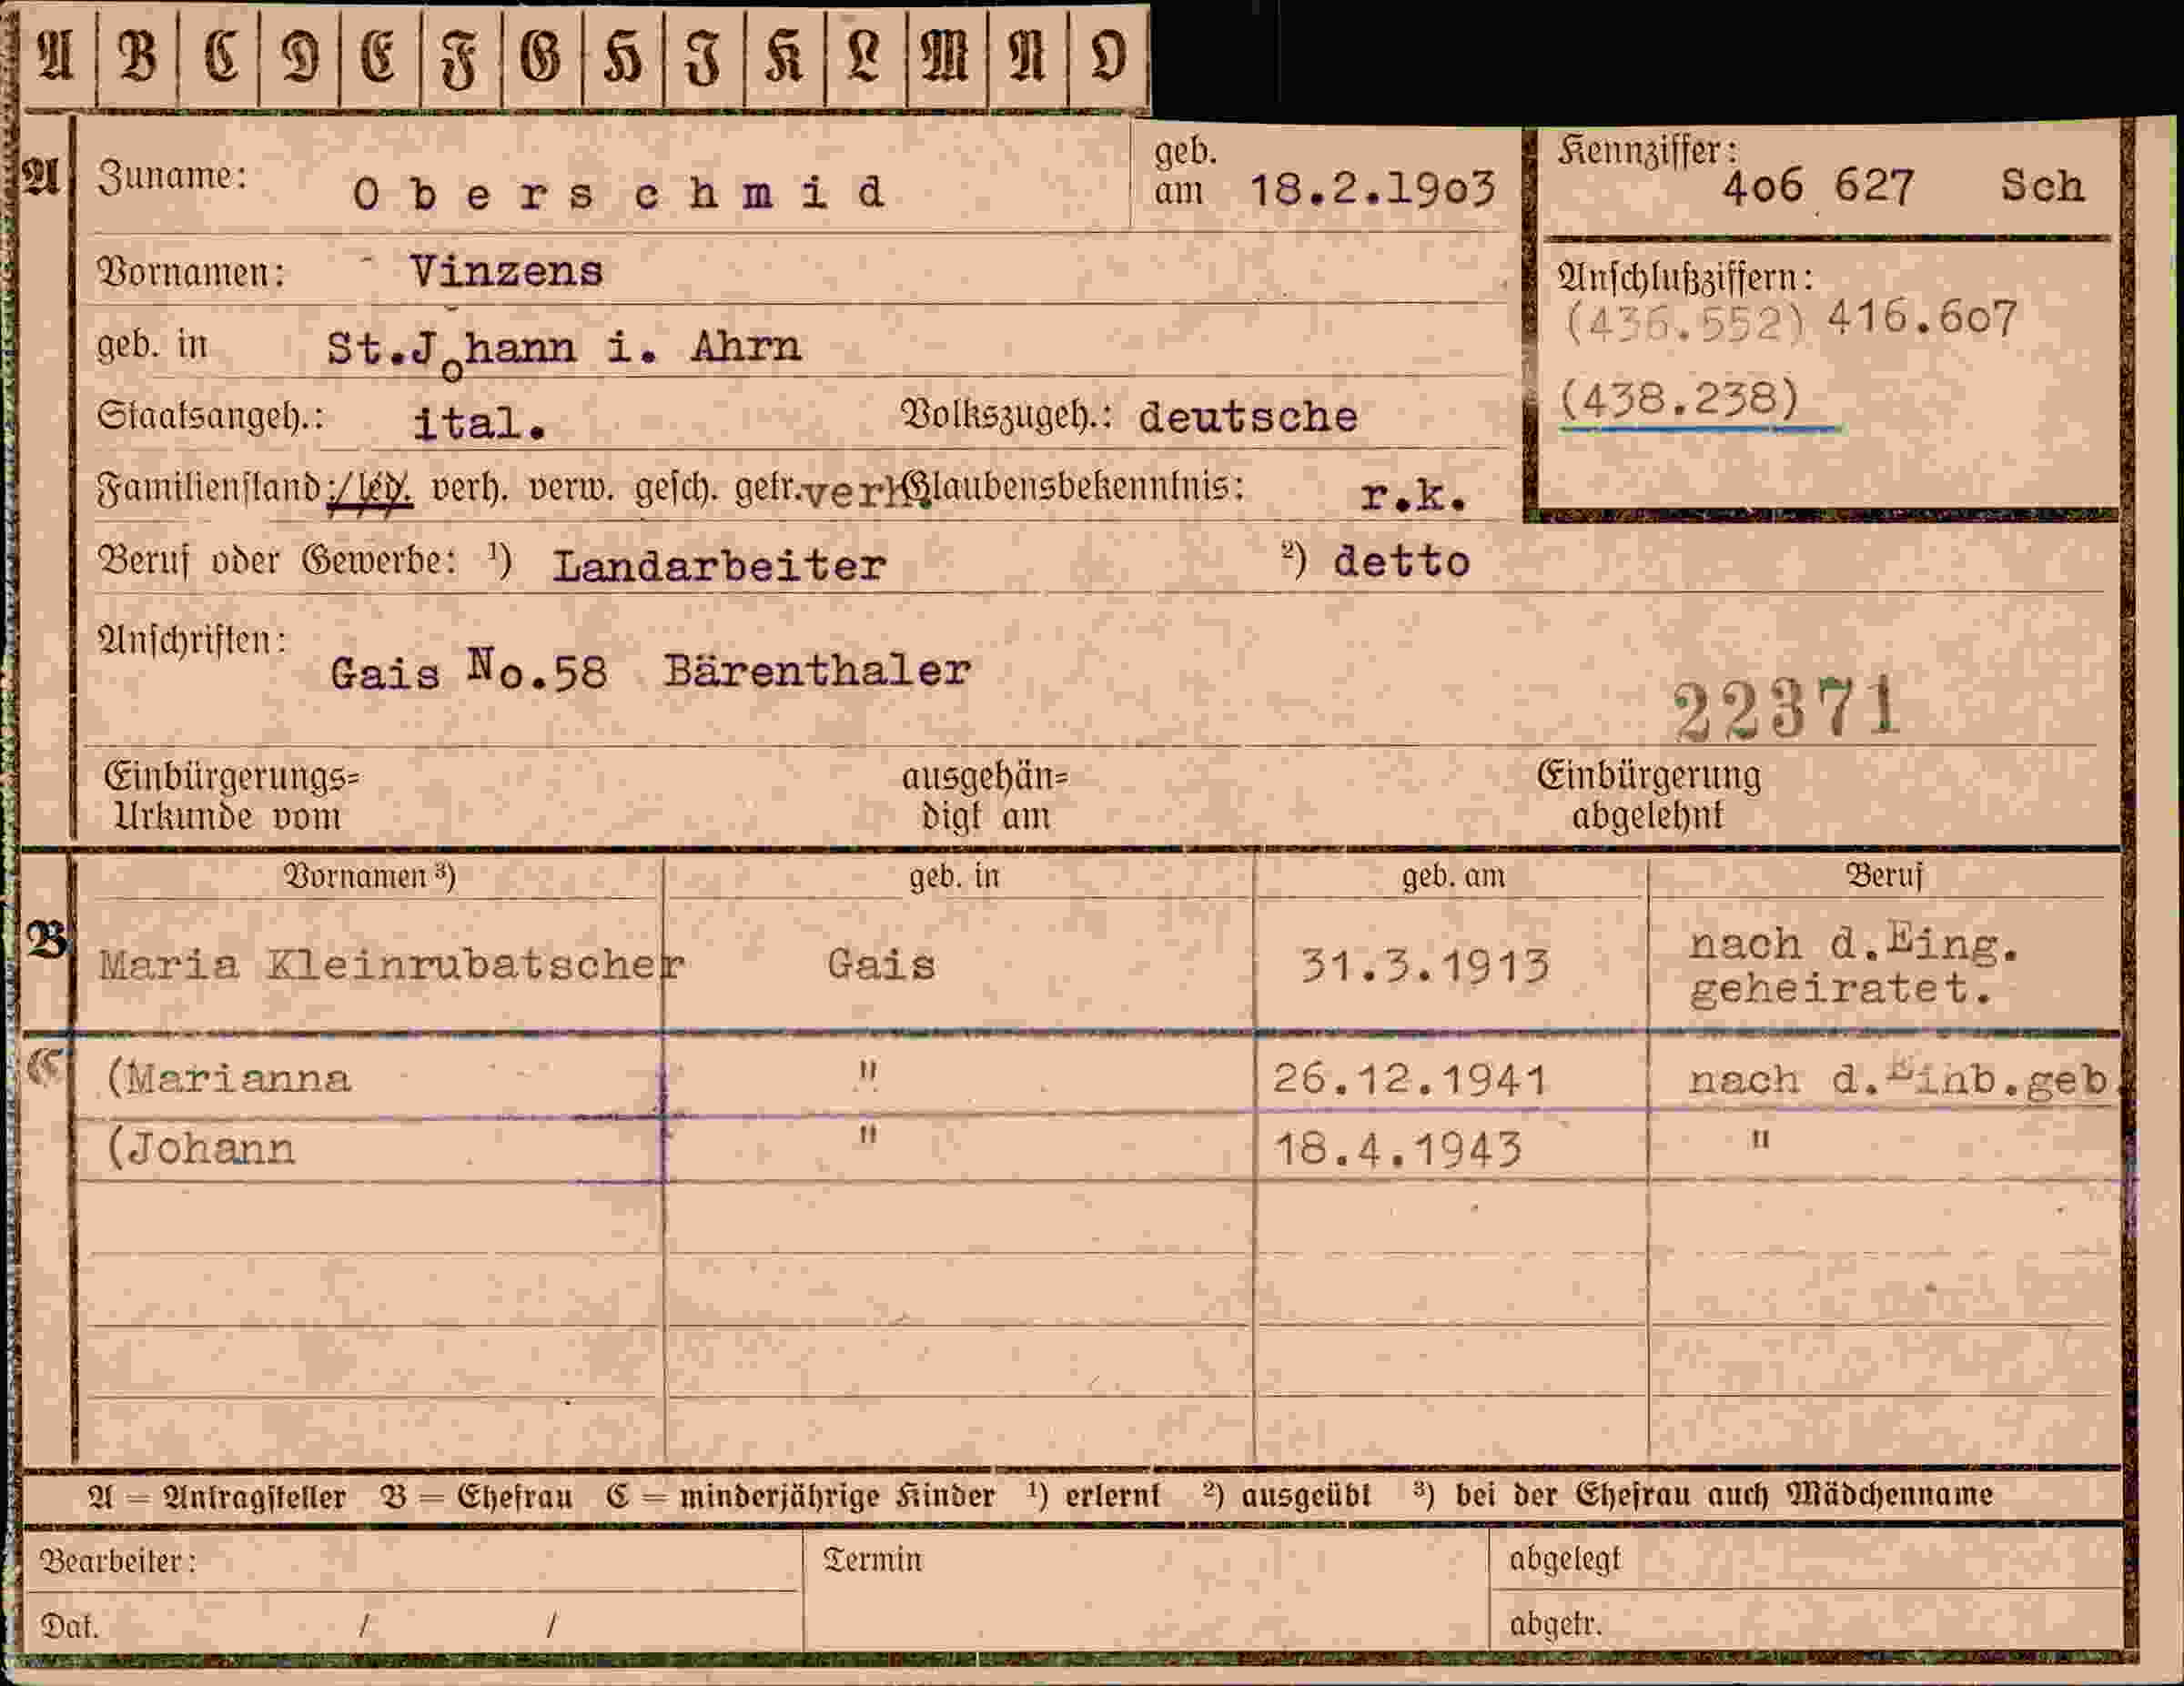 A B C D E F G H I K L M N O
A Zuname: Oberschmid geb. am 18.2.1903 Kennziffer: 406 627 Sch
Vornamen: Vinzens
Anschlußziffern:
(436.552) 416.607
geb. in St.Johann i. Ahrn
(438.238)
Staatsangeh.: ital. Volkszugeh.: deutsche
Familienstand: led. verh. verw. gesch. getr. verh Glaubensbekenntnis: r.k.
Beruf oder Gewerbe: ¹) Landarbeiter ²) detto
Anschriften:
Gais No.58 Bärenthaler
22371
Einbürgerungs= ausgehän= Einbürgerung
Urkunde vom digt am abgelehnt
Vornamen ³) geb. in geb. am Beruf
B Maria Kleinrubatscher Gais 31.3.1913 nach d.Eing.
geheiratet.
C (Marianna " 26.12.1941 nach d.Einb.geb.
(Johann " 18.4.1943 "
A = Antragsteller B = Ehefrau C = minderjährige Kinder ¹) erlernt ²) ausgeübt ³) bei der Ehefrau auch Mädchenname
Bearbeiter: Termin abgelegt
Dat. / / abgetr.